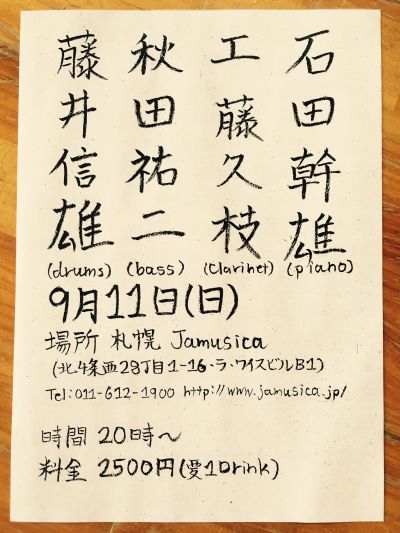 石田幹雄
(piano)
工藤久枝
(Clarinet)
秋田祐二
(bass)
藤井信雄
(drums)
9月11日(日)
場所 札幌 Jamusica
(北4条西28丁目1-16・ラ・ワイスビルB1)
Tel:011-612-1900 http://www.jamusica.jp/
時間 20時〜
料金 2500円(要1Drink)